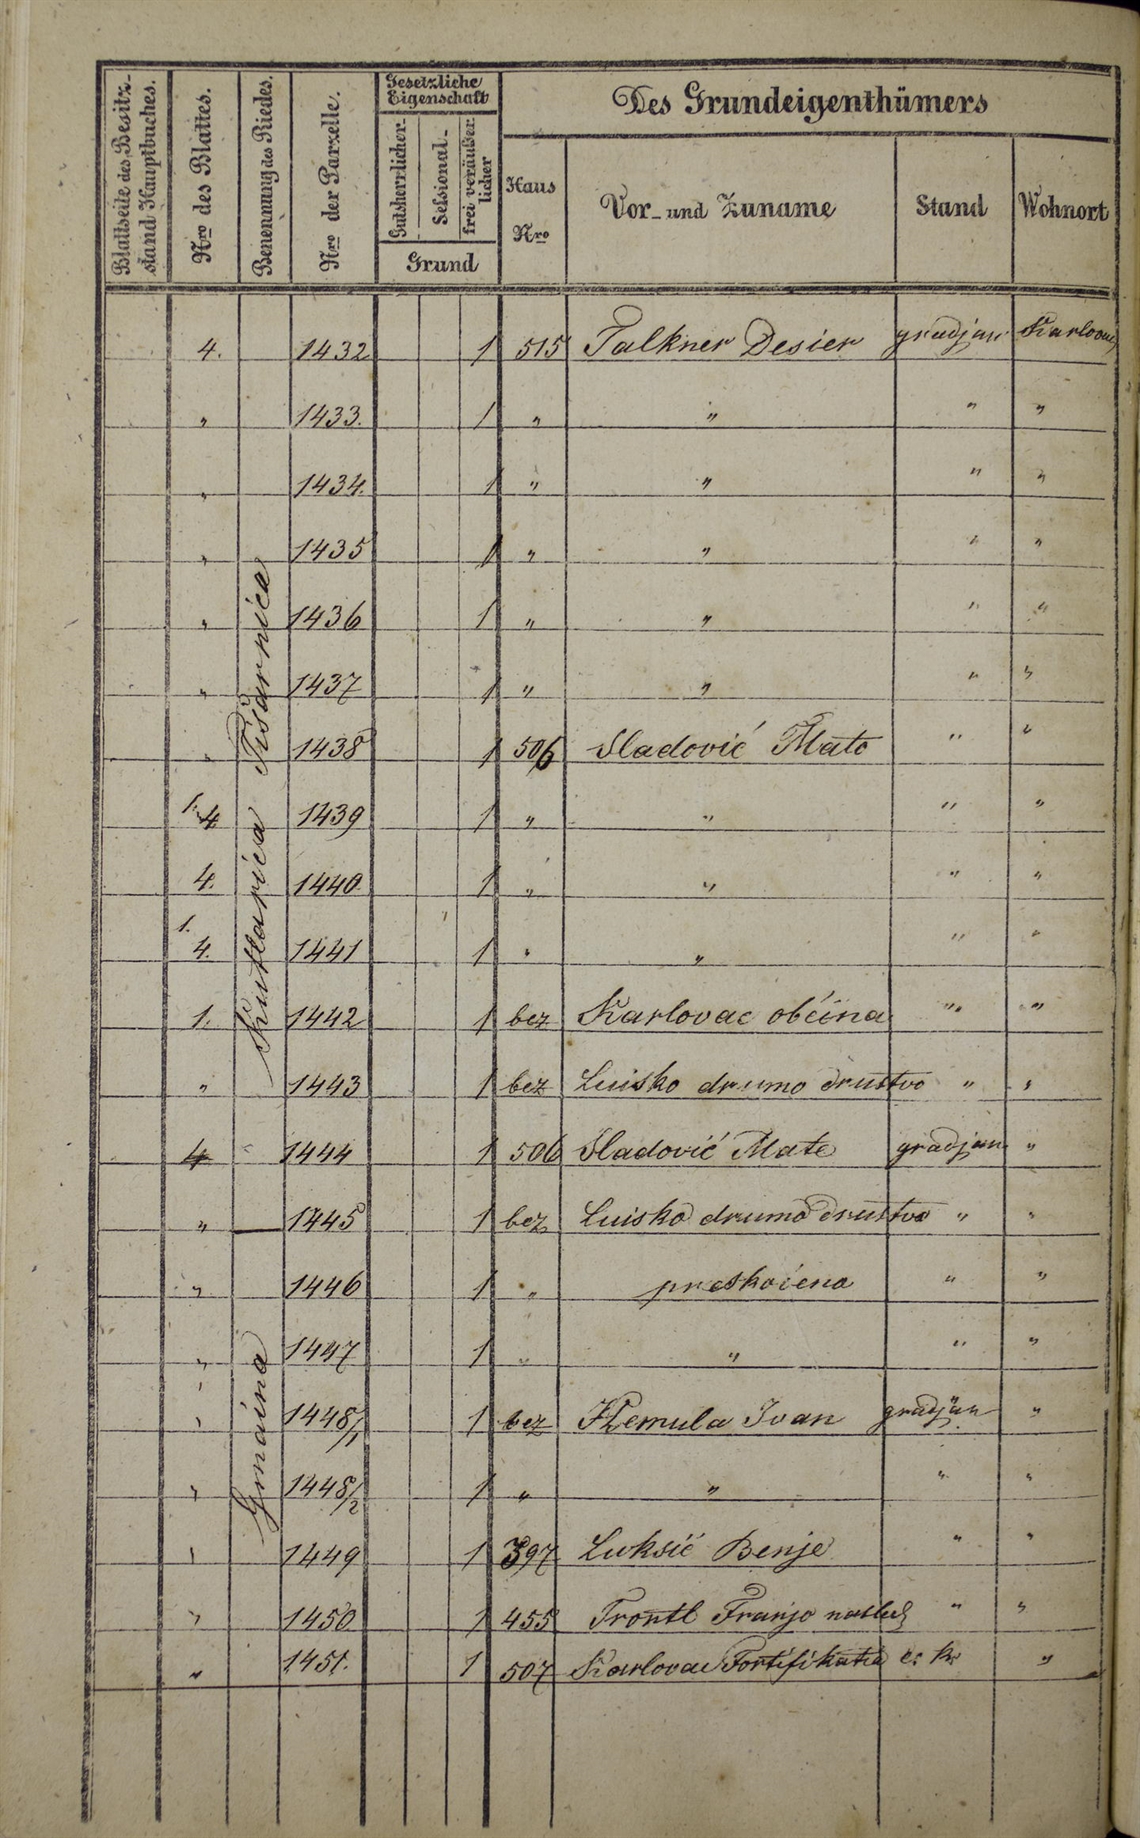 Blattseite des Besitz-
stand Hauptbuches.
Nro des Blattes.
Benennung des Riedes.
Nro der Parzelle.
Gesetzliche
Eigenschaft
Gutsherrlicher
Sessional-
frei veräußer
licher
Grund
Des Grundeigenthümers
Haus
Nro
Vor- und Zuname
Stand
Wohnort
Kutlarica Pisarnica
Gmaina
4. 1432 1 515 Falkner Desier gradjan Karlovac
" 1433. 1 " " " "
" 1434. 1 " " " "
" 1435 1 " " " "
" 1436 1 " " " "
" 1437 1 " " " "
" 1438 1 506 Sladović Mato " "
1. 4 1439 1 " " " "
4. 1440 1 " " " "
1. 4. 1441 1 " " " "
1. 1442 1 bez Karlovac občina " "
" 1443 1 bez Luisko drumo družtvo " "
4 1444 1 506 Sladović Mate gradjan "
" 1445 1 bez Luisko drumo družtvo " "
" 1446 1 " preskočena " "
" 1447 1 " " " "
" 1448/1 1 bez Hemula Ivan gradjan "
" 1448/2 1 " " " "
" 1449 1 397 Luksić Benje " "
" 1450 1 455 Frontl Franjo " "
" 1451. 1 507 Karlovac Fortifikatia c. k. "